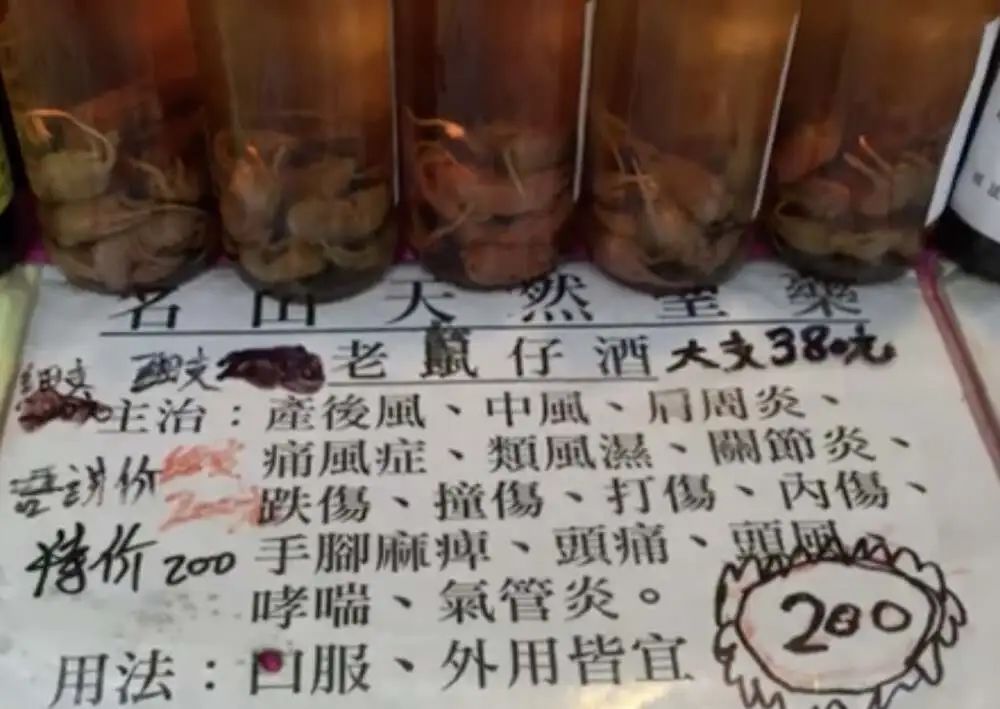 名山天然藥
老鼠仔酒 大支380元
主治：產後風、中風、肩周炎、
痛風症、類風濕、關節炎、
跌傷、撞傷、打傷、內傷、
特价200 手腳麻痺、頭痛、頭風、
哮喘、氣管炎。
200
用法：口服、外用皆宜